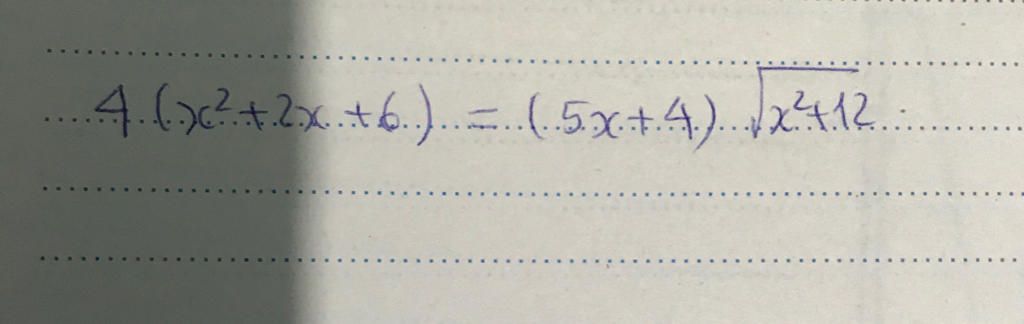 4 (x² + 2x + 6) = (5x + 4) √(x² + 12)